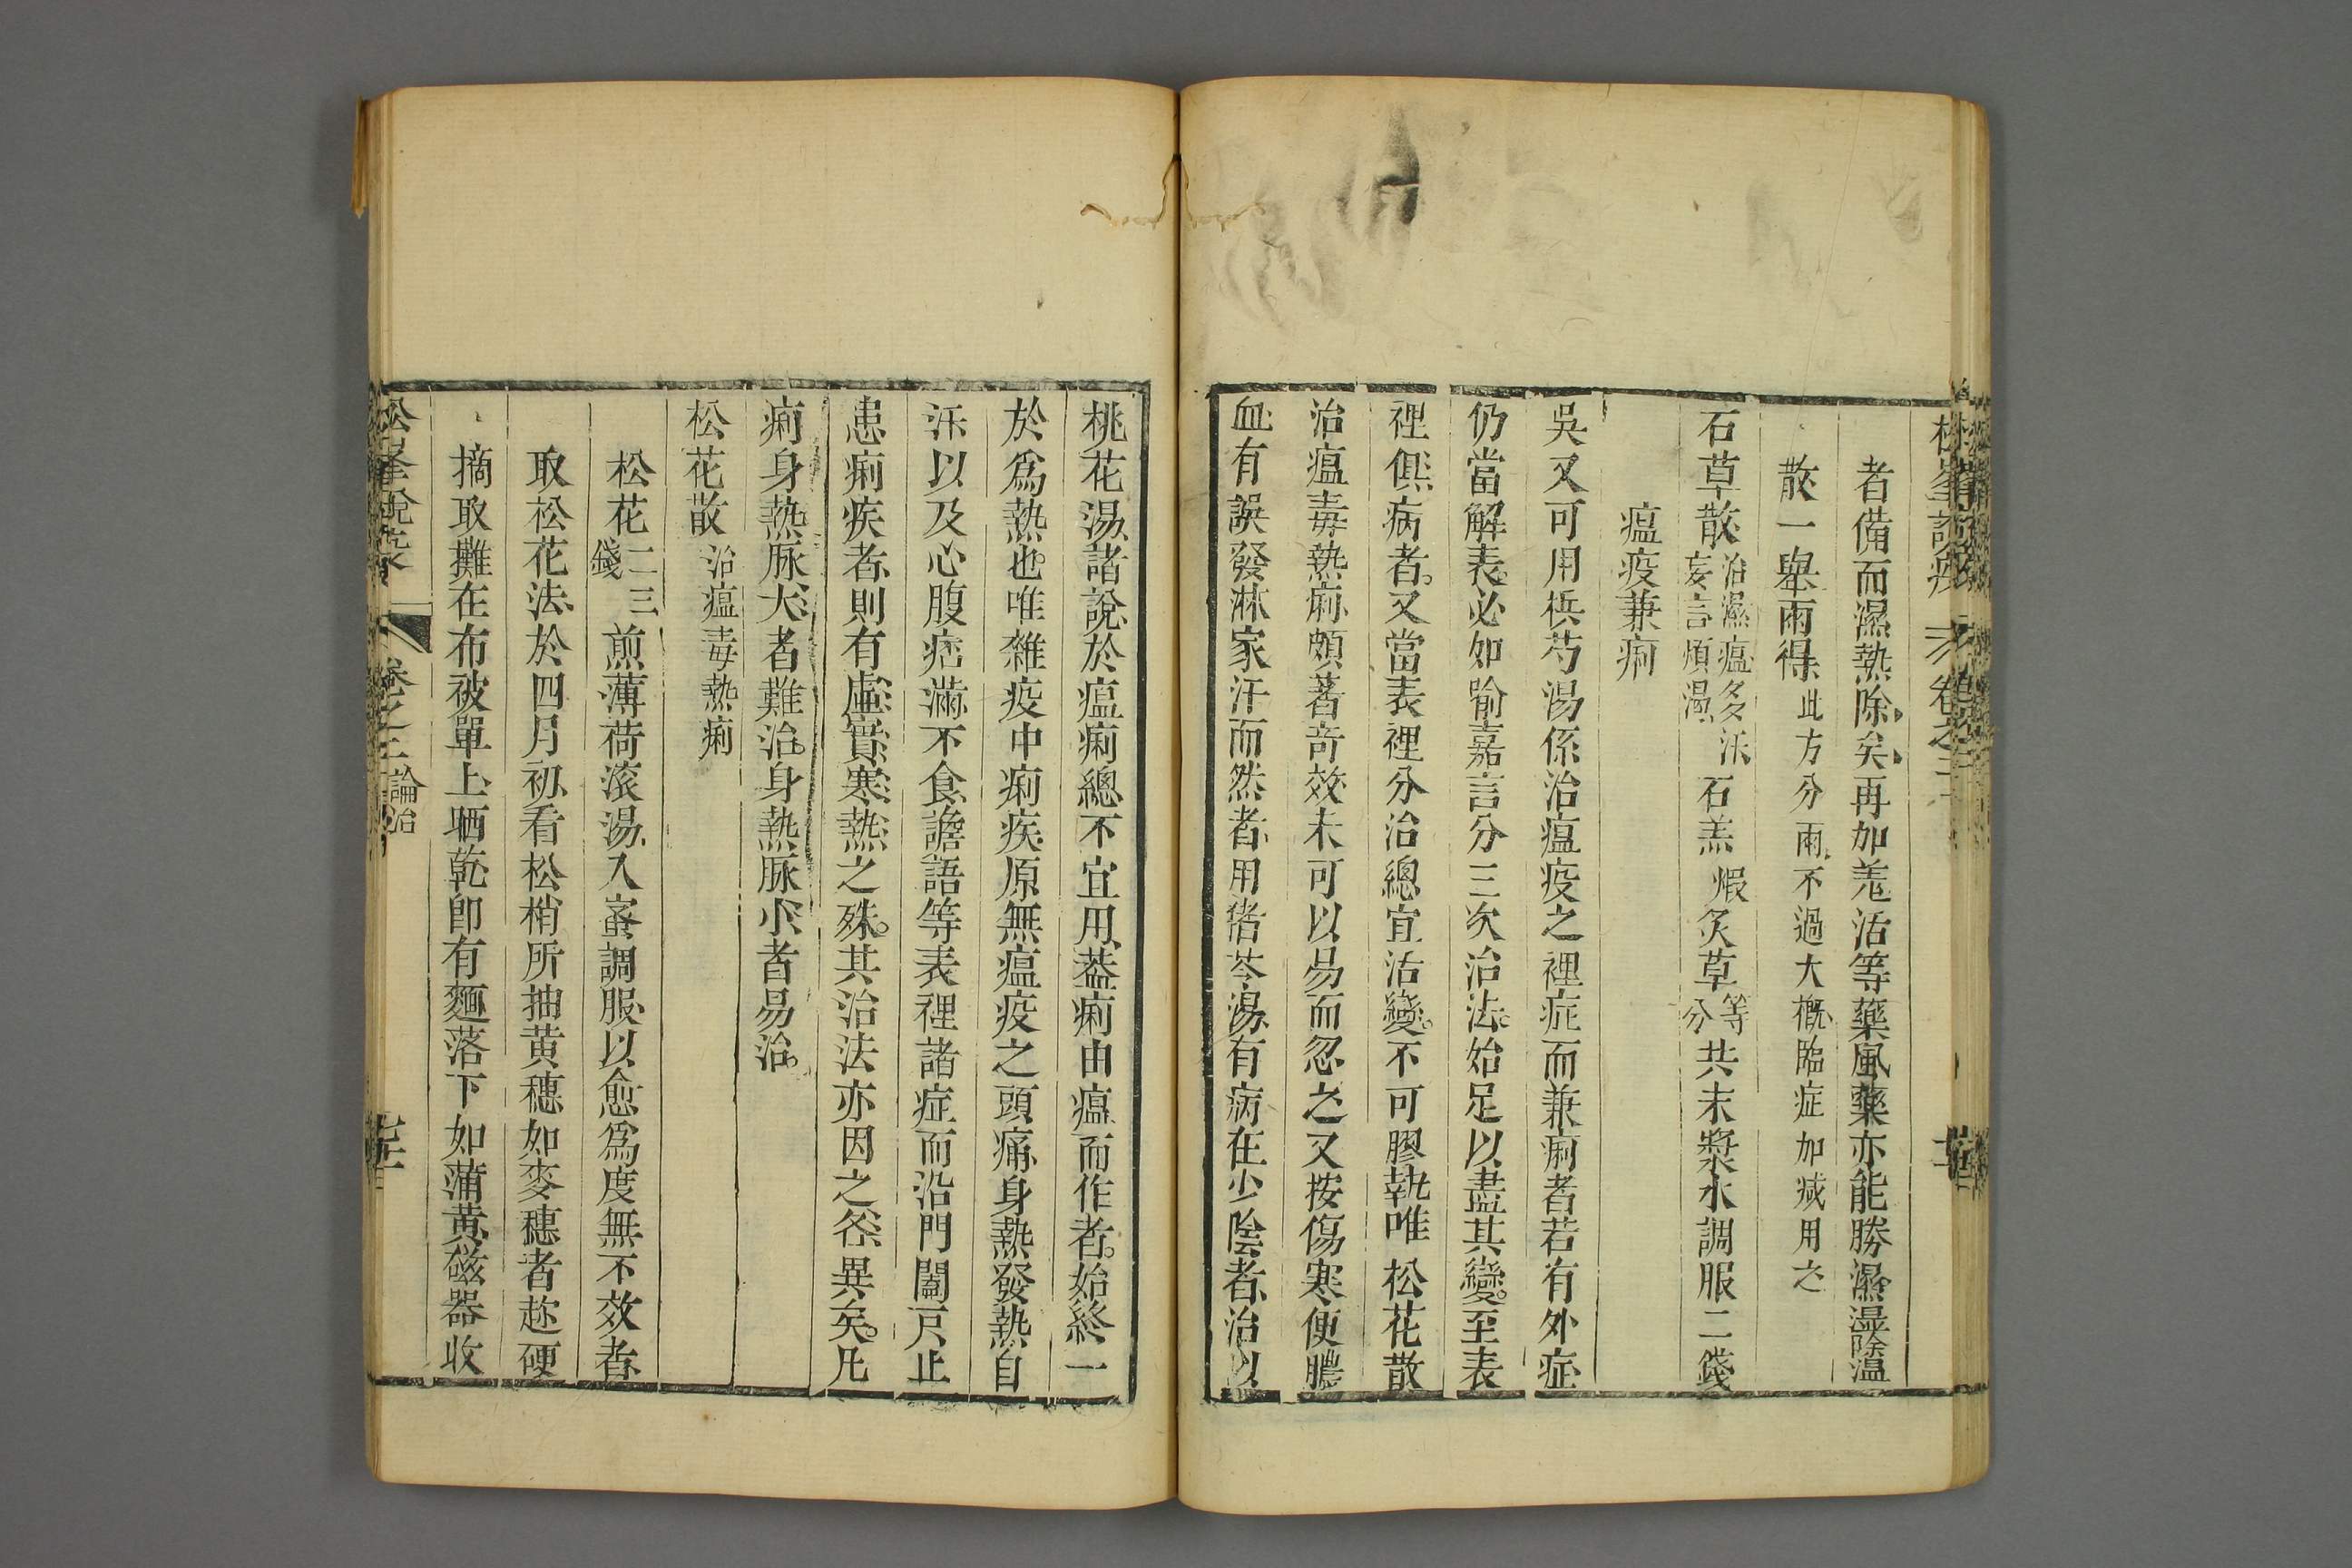 松峯說疫 卷之三
者備而濕熱除矣再加羗活等藥風藥亦能勝濕濕除溫
散一舉兩得此方分兩不過大概臨症加减用之
石草散治濕瘟多汗妄言煩渴石羔煆炙草等分共末漿水調服二錢
瘟疫兼痢
吳又可用梹芍湯係治瘟疫之裡症而兼痢者若有外症
仍當解表必如喻嘉言分三次治法始足以盡其變至表
裡俱病者又當表裡分治總宜活變不可膠執唯松花散
治瘟毒熱痢頗著竒效未可以易而忽之又按傷寒便膿
血有誤發淋家汗而然者用猪苓湯有病在少陰者治以
桃花湯諸說於瘟痢總不宜用葢痢由瘟而作者始終一
於爲熱也唯雜疫中痢疾原無瘟疫之頭痛身熱發熱自
汗以及心腹痞滿不食譫語等表裡諸症而沿門闔戸止
患痢疾者則有虛實寒熱之殊其治法亦因之各異矣凡
痢身熱脉大者難治身熱脉小者易治
松花散治瘟毒熱痢
松花二三錢煎薄荷滚湯入蜜調服以愈爲度無不效者
取松花法於四月初看松梢所抽黄穗如麥穗者趂硬
摘取攤在布被單上晒乾卽有麵落下如蒲黄磁器收
松峯說疫 卷之三 論治